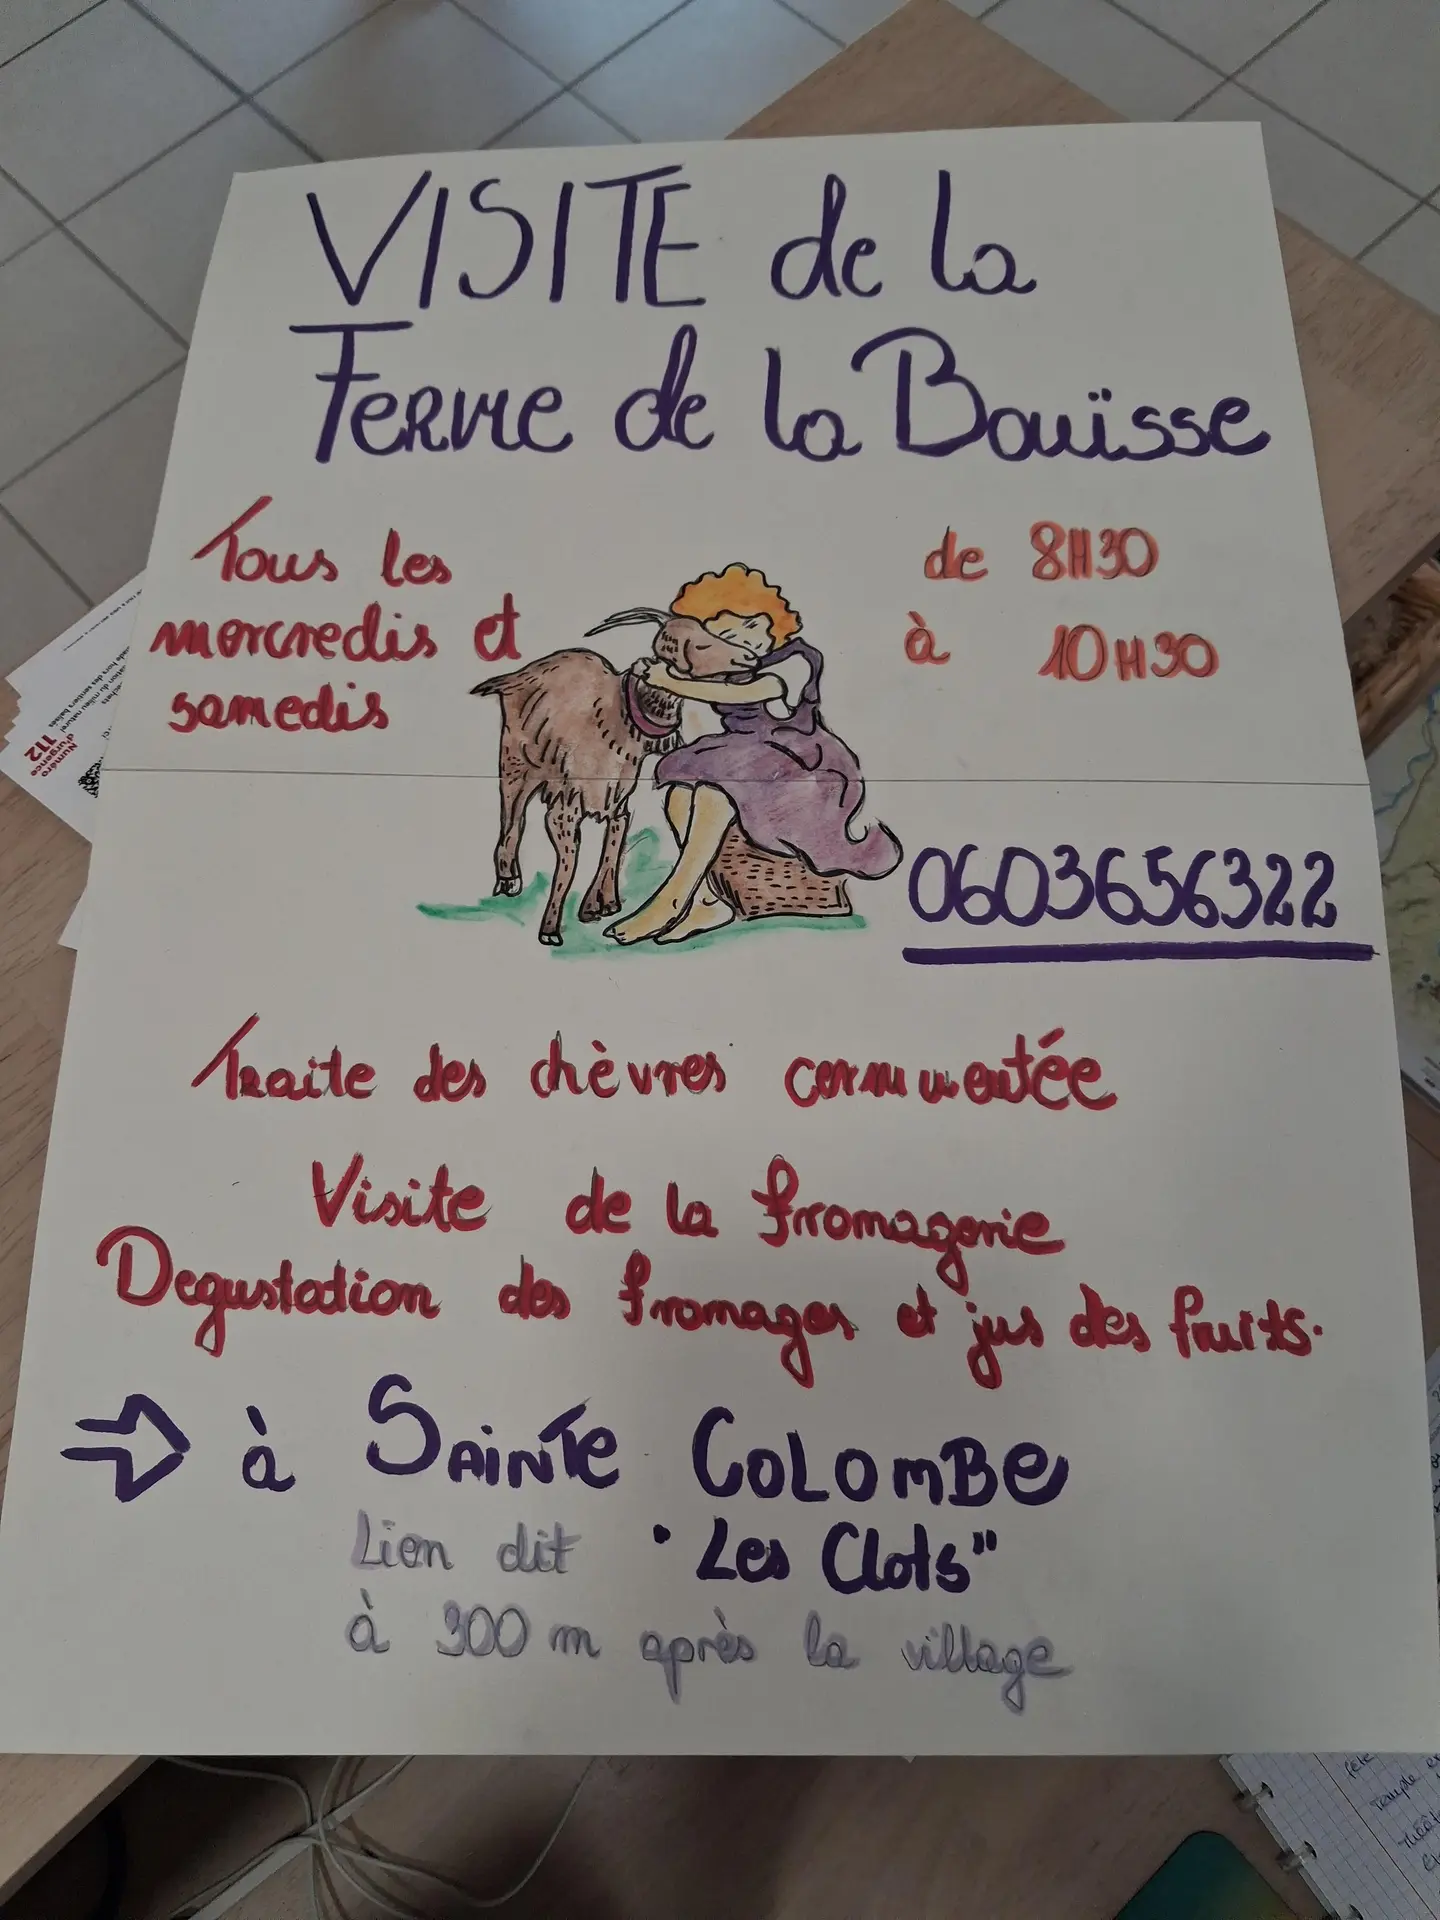 VISITE de la
Ferme de la Bouïsse
Tous les
mercredis et
samedis
de 8H30
à 10H30
0603656322
Traite des chèvres commentée
Visite de la fromagerie
Degustation des fromages et jus des fruits.
à SAINTE COLOMBE
Lieu dit "Les Clots"
à 300 m après la village
Numéro
d'urgence
112